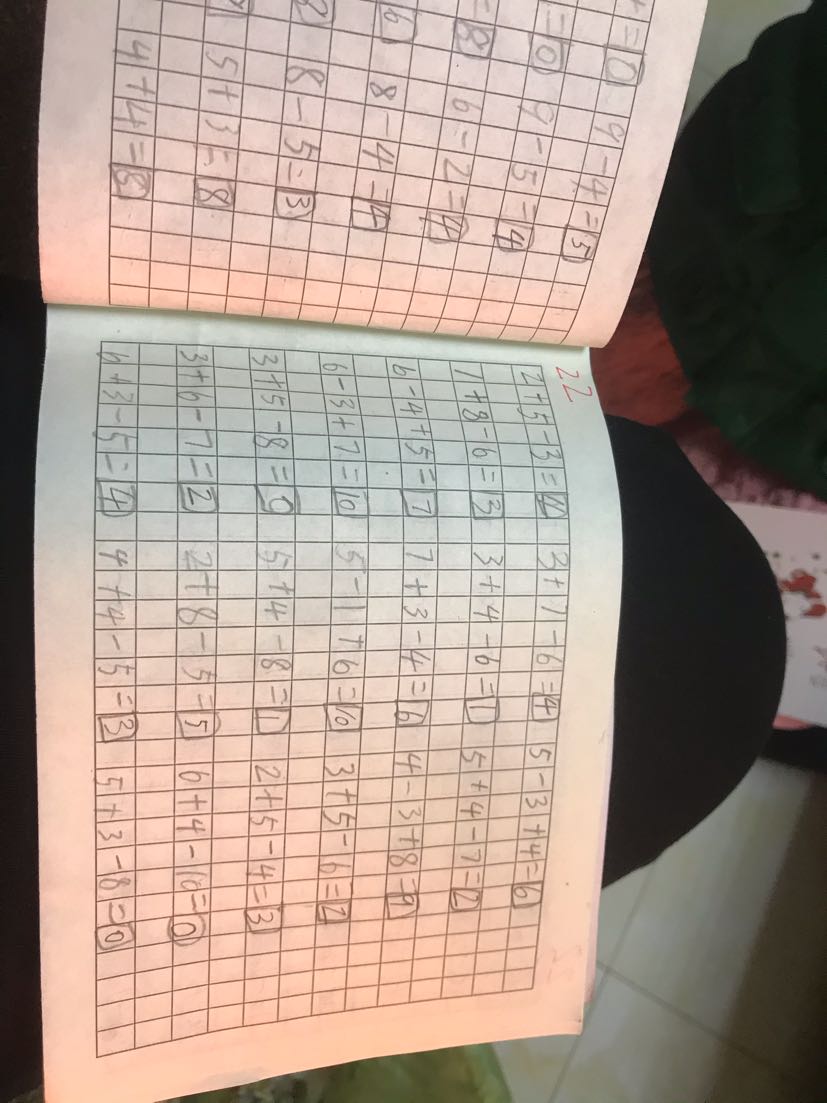 =0 9-4=5
=0 9-5=4
=8 6-2=4
6 8-4=4
8-5=3
5+3=8
4+4=8
22
2+5-3=4 3+7-6=4 5-3+4=6
1+8-6=3 3+4-6=1 5+4-7=2
6-4+5=7 7+3-4=6 4-3+8=9
6-3+7=10 5-1+6=10 3+5-6=2
3+5-8=0 5+4-8=1 2+5-4=3
3+6-7=2 2+8-5=5 6+4-10=0
6+3-5=4 4+4-5=3 5+3-8=0